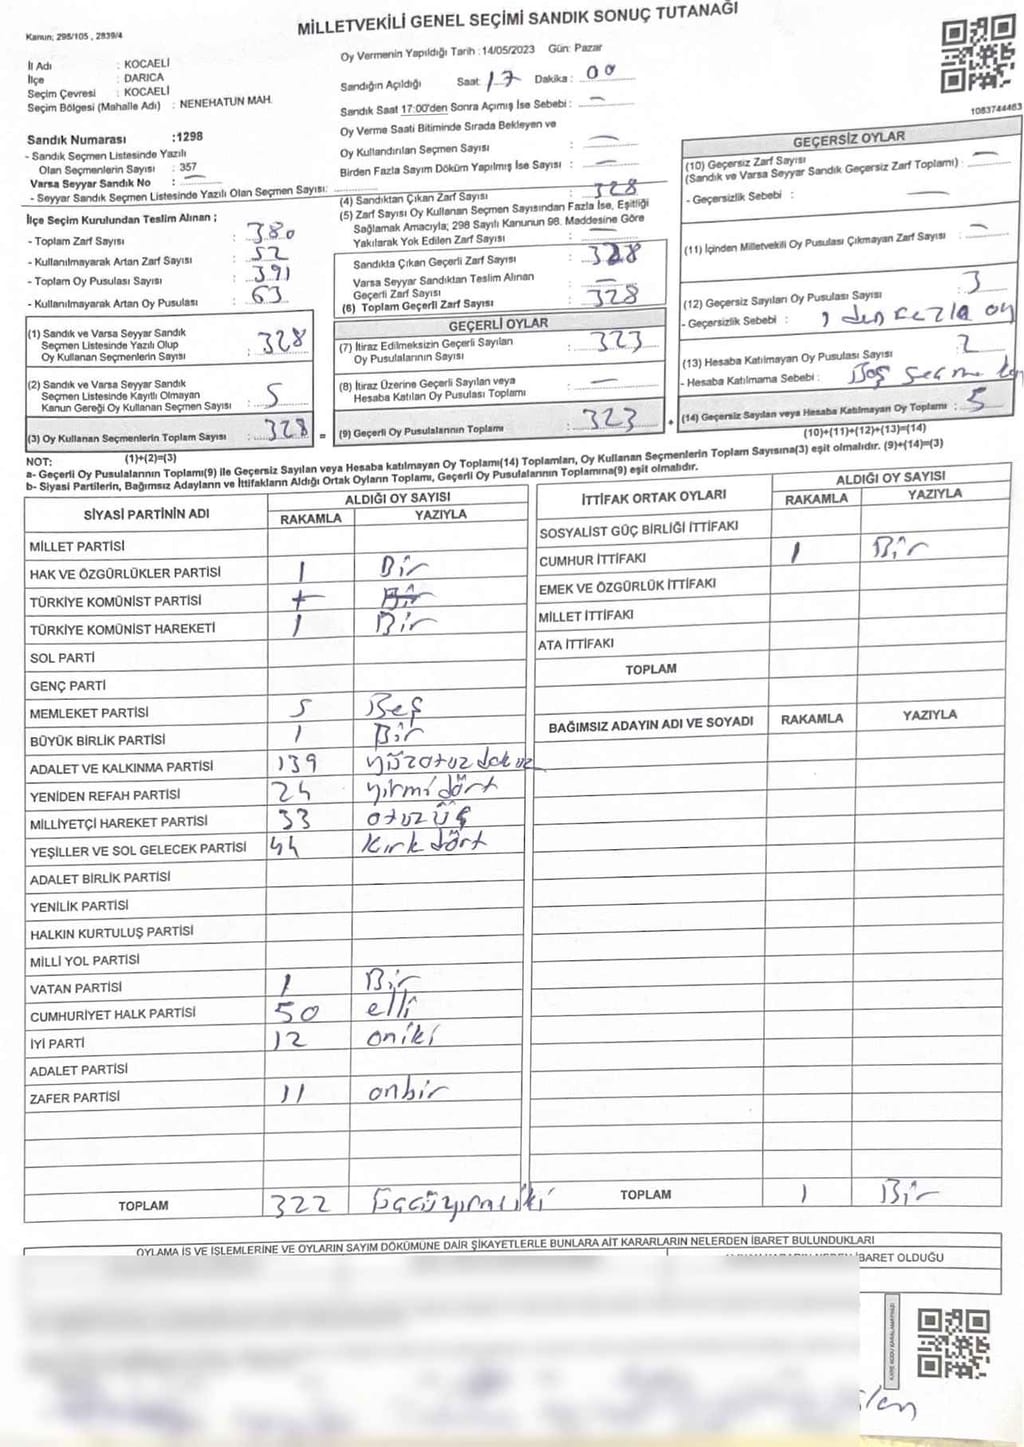 MİLLETVEKİLİ GENEL SEÇİMİ SANDIK SONUÇ TUTANAĞI
Kanun; 298/105 , 2839/4
İl Adı : KOCAELİ
İlçe : DARICA
Seçim Çevresi : KOCAELİ
Seçim Bölgesi (Mahalle Adı) : NENEHATUN MAH.
Sandık Numarası :1298
- Sandık Seçmen Listesinde Yazılı
Olan Seçmenlerin Sayısı : 357
Varsa Seyyar Sandık No : —
- Seyyar Sandık Seçmen Listesinde Yazılı Olan Seçmen Sayısı:
İlçe Seçim Kurulundan Teslim Alınan ;
- Toplam Zarf Sayısı : 380
- Kullanılmayarak Artan Zarf Sayısı : 52
- Toplam Oy Pusulası Sayısı : 391
- Kullanılmayarak Artan Oy Pusulası : 63
(1) Sandık ve Varsa Seyyar Sandık
Seçmen Listesinde Yazılı Olup
Oy Kullanan Seçmenlerin Sayısı : 328
(2) Sandık ve Varsa Seyyar Sandık
Seçmen Listesinde Kayıtlı Olmayan
Kanun Gereği Oy Kullanan Seçmen Sayısı : 5
(3) Oy Kullanan Seçmenlerin Toplam Sayısı : 328
(1)+(2)=(3)
Oy Vermenin Yapıldığı Tarih :14/05/2023 Gün: Pazar
Sandığın Açıldığı Saat: 17 Dakika : 00
Sandık Saat 17:00'den Sonra Açımış İse Sebebi : —
Oy Verme Saati Bitiminde Sırada Bekleyen ve
Oy Kullandırılan Seçmen Sayısı : —
Birden Fazla Sayım Döküm Yapılmış İse Sayısı : —
(4) Sandıktan Çıkan Zarf Sayısı : 328
(5) Zarf Sayısı Oy Kullanan Seçmen Sayısından Fazla İse, Eşitliği
Sağlamak Amacıyla; 298 Sayılı Kanunun 98. Maddesine Göre
Yakılarak Yok Edilen Zarf Sayısı : —
Sandıkta Çıkan Geçerli Zarf Sayısı : 328
Varsa Seyyar Sandıktan Teslim Alınan
Geçerli Zarf Sayısı : —
(6) Toplam Geçerli Zarf Sayısı : 328
GEÇERLİ OYLAR
(7) İtiraz Edilmeksizin Geçerli Sayılan
Oy Pusulalarının Sayısı : 323
(8) İtiraz Üzerine Geçerli Sayılan veya
Hesaba Katılan Oy Pusulası Toplamı : —
= (9) Geçerli Oy Pusulalarının Toplamı : 323
1083744463
GEÇERSİZ OYLAR
(10) Geçersiz Zarf Sayısı
(Sandık ve Varsa Seyyar Sandık Geçersiz Zarf Toplamı) : —
- Geçersizlik Sebebi : —
(11) İçinden Milletvekili Oy Pusulası Çıkmayan Zarf Sayısı : —
(12) Geçersiz Sayılan Oy Pusulası Sayısı : 3
- Geçersizlik Sebebi : 1 den fazla oy
(13) Hesaba Katılmayan Oy Pusulası Sayısı : 2
- Hesaba Katılmama Sebebi : Boş
+ (14) Geçersiz Sayılan veya Hesaba Katılmayan Oy Toplamı : 5
(10)+(11)+(12)+(13)=(14)
NOT:
a- Geçerli Oy Pusulalarının Toplamı(9) ile Geçersiz Sayılan veya Hesaba katılmayan Oy Toplamı(14) Toplamları, Oy Kullanan Seçmenlerin Toplam Sayısına(3) eşit olmalıdır. (9)+(14)=(3)
b- Siyasi Partilerin, Bağımsız Adayların ve İttifakların Aldığı Ortak Oyların Toplamı, Geçerli Oy Pusulalarının Toplamına(9) eşit olmalıdır.
SİYASİ PARTİNİN ADI ALDIĞI OY SAYISI
RAKAMLA YAZIYLA
MİLLET PARTİSİ
HAK VE ÖZGÜRLÜKLER PARTİSİ 1 Bir
TÜRKİYE KOMÜNİST PARTİSİ 1 Bir
TÜRKİYE KOMÜNİST HAREKETİ 1 Bir
SOL PARTİ
GENÇ PARTİ
MEMLEKET PARTİSİ 5 Beş
BÜYÜK BİRLİK PARTİSİ 1 Bir
ADALET VE KALKINMA PARTİSİ 139 yüzotuz dokuz
YENİDEN REFAH PARTİSİ 24 yirmi dört
MİLLİYETÇİ HAREKET PARTİSİ 33 otuzüç
YEŞİLLER VE SOL GELECEK PARTİSİ 44 Kırk dört
ADALET BİRLİK PARTİSİ
YENİLİK PARTİSİ
HALKIN KURTULUŞ PARTİSİ
MİLLİ YOL PARTİSİ
VATAN PARTİSİ 1 Bir
CUMHURİYET HALK PARTİSİ 50 elli
İYİ PARTİ 12 oniki
ADALET PARTİSİ
ZAFER PARTİSİ 11 onbir
TOPLAM 322
İTTİFAK ORTAK OYLARI ALDIĞI OY SAYISI
RAKAMLA YAZIYLA
SOSYALİST GÜÇ BİRLİĞİ İTTİFAKI
CUMHUR İTTİFAKI 1 Bir
EMEK VE ÖZGÜRLÜK İTTİFAKI
MİLLET İTTİFAKI
ATA İTTİFAKI
TOPLAM
BAĞIMSIZ ADAYIN ADI VE SOYADI RAKAMLA YAZIYLA
TOPLAM 1 Bir
OYLAMA İŞ VE İŞLEMLERİNE VE OYLARIN SAYIM DÖKÜMÜNE DAİR ŞİKAYETLERLE BUNLARA AİT KARARLARIN NELERDEN İBARET BULUNDUKLARI
İBARET OLDUĞU